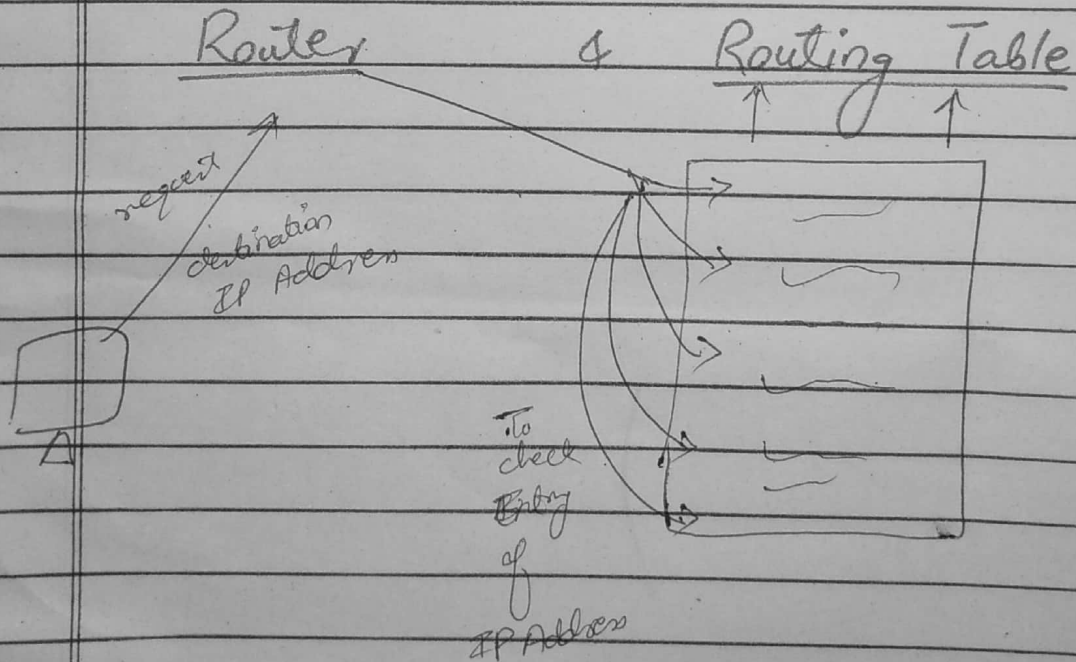 Router & Routing Table
request
destination
IP Address
To
check
Entry
of
IP Address